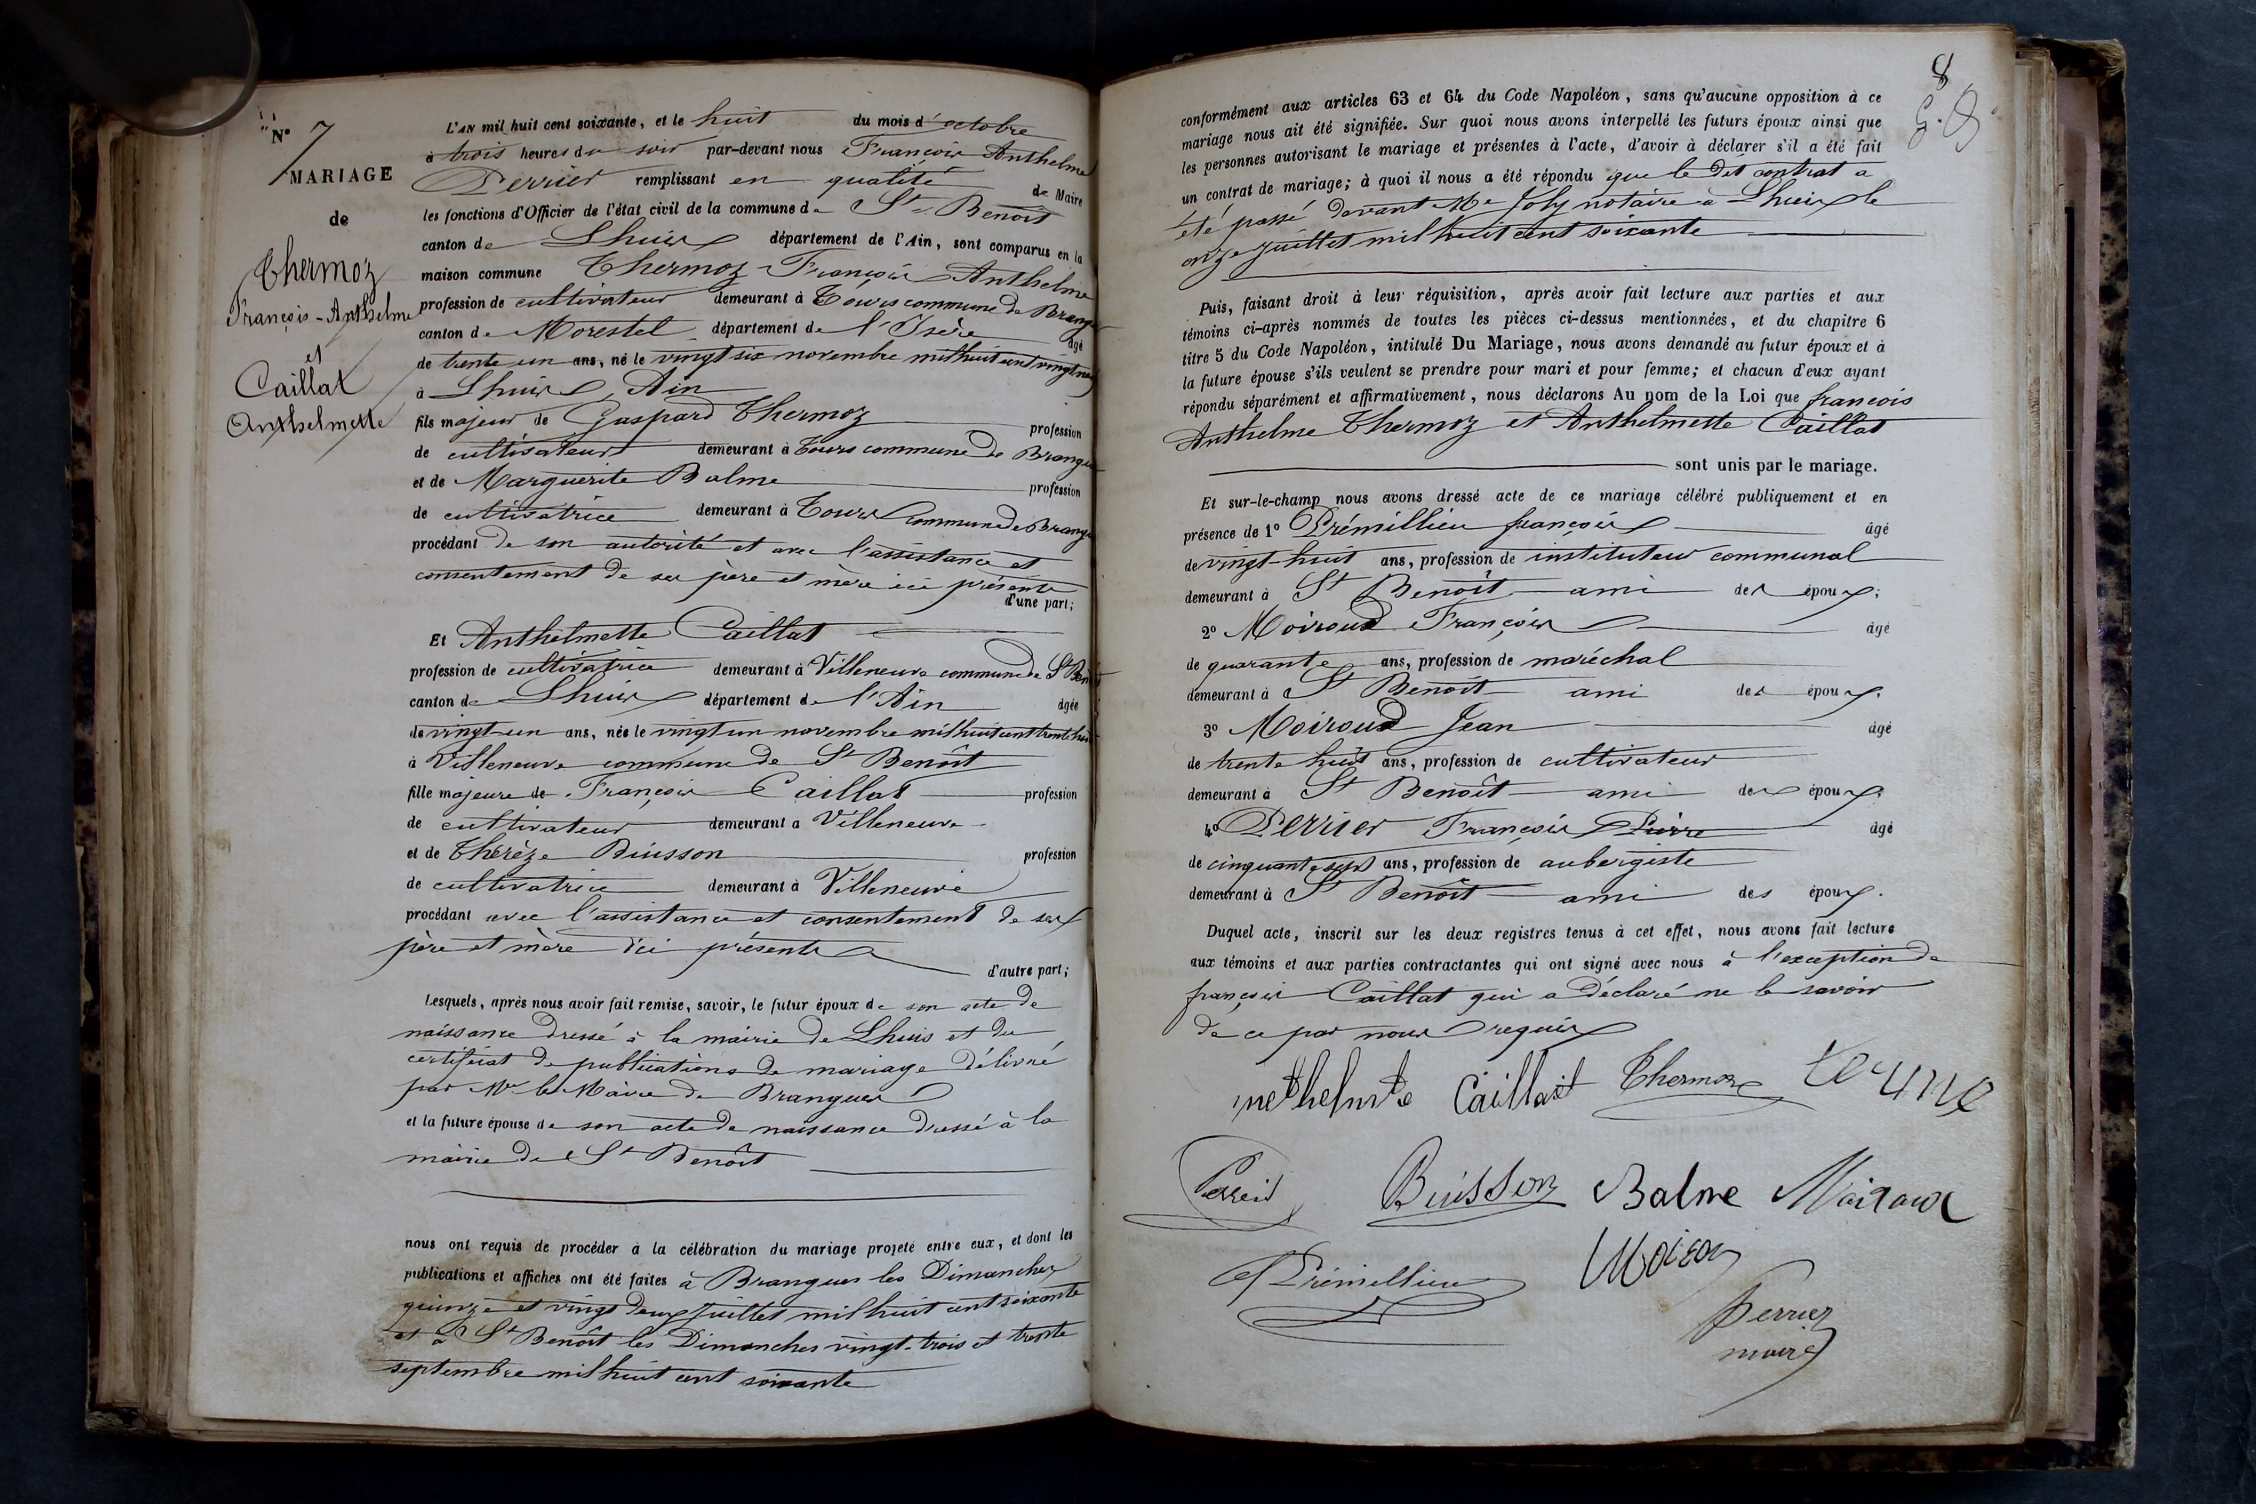 N° 7
MARIAGE
de
Thermoz
François-Anthelme
et
Caillat
Anthelmette
L'AN mil huit cent soixante, et le huit du mois d'octobre
à trois heures du soir par-devant nous François Anthelme
Perrier remplissant en qualité de Maire
les fonctions d'Officier de l'état civil de la commune de St Benoît
canton de Lhuis département de l'Ain, sont comparus en la
maison commune Thermoz François Anthelme
profession de cultivateur demeurant à Tours commune de Brangues
canton de Morestel département de l'Isère âgé
de trente un ans, né le vingt six novembre mil huit cent vingt neuf
à Lhuis Ain
fils majeur de Gaspard Thermoz profession
de cultivateur demeurant à Tours commune de Brangues
et de Marguerite Balme profession
de cultivatrice demeurant à Tours commune de Brangues
procédant de son autorité et avec l'assistance et
consentement de ses père et mère ici présents
d'une part;
Et Anthelmette Caillat
profession de cultivatrice demeurant à Villeneuve commune de St Benoît
canton de Lhuis département de l'Ain âgée
de vingt-un ans, née le vingt un novembre mil huit cent trente huit
à Villeneuve commune de St Benoît
fille majeure de François Caillat profession
de cultivateur demeurant à Villeneuve
et de Thérèze Buisson profession
de cultivatrice demeurant à Villeneuve
procédant avec l'assistance et consentement de ses
père et mère ici présents
d'autre part;
Lesquels, après nous avoir fait remise, savoir, le futur époux de son acte de
naissance dressé à la mairie de Lhuis et du
certificat de publications de mariage délivré
par Mr le Maire de Brangues
et la future épouse de son acte de naissance dressé à la
mairie de St Benoît
nous ont requis de procéder à la célébration du mariage projeté entre eux, et dont les
publications et affiches ont été faites à Brangues les Dimanches
quinze et vingt deux juillet mil huit cent soixante
et à St Benoît les Dimanches vingt-trois et trente
septembre mil huit cent soixante
8
conformément aux articles 63 et 64 du Code Napoléon, sans qu'aucune opposition à ce
mariage nous ait été signifiée. Sur quoi nous avons interpellé les futurs époux ainsi que
les personnes autorisant le mariage et présentes à l'acte, d'avoir à déclarer s'il a été fait
un contrat de mariage; à quoi il nous a été répondu que le dit contrat a
été passé devant Me Joly notaire à Lhuis le
onze juillet mil huit cent soixante
Puis, faisant droit à leur réquisition, après avoir fait lecture aux parties et aux
témoins ci-après nommés de toutes les pièces ci-dessus mentionnées, et du chapitre 6
titre 5 du Code Napoléon, intitulé Du Mariage, nous avons demandé au futur époux et à
la future épouse s'ils veulent se prendre pour mari et pour femme; et chacun d'eux ayant
répondu séparément et affirmativement, nous déclarons Au nom de la Loi que françois
Anthelme Thermoz et Anthelmette Caillat
sont unis par le mariage.
Et sur-le-champ nous avons dressé acte de ce mariage célébré publiquement et en
présence de 1° Prémillieu françois âgé
de vingt-huit ans, profession de instituteur communal
demeurant à St Benoît ami des époux;
2° Moiroud François âgé
de quarante ans, profession de maréchal
demeurant à St Benoît ami des époux;
3° Moiroud Jean âgé
de trente huit ans, profession de cultivateur
demeurant à St Benoît ami des époux;
4° Perrier François Pierre âgé
de cinquante sept ans, profession de aubergiste
demeurant à St Benoît ami des époux.
Duquel acte, inscrit sur les deux registres tenus à cet effet, nous avons fait lecture
aux témoins et aux parties contractantes qui ont signé avec nous à l'exception de
françois Caillat qui a déclaré ne le savoir
de ce par nous requis
Caillat Thermoz
Buisson Balme Moiroud
Prémillieu
Perrier
maire